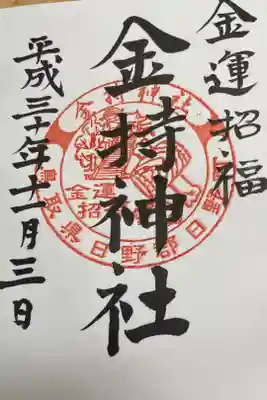 金運招福
金持神社
平成三十年十一月三日
金持神社
金運
招福
鳥取県日野郡日野町